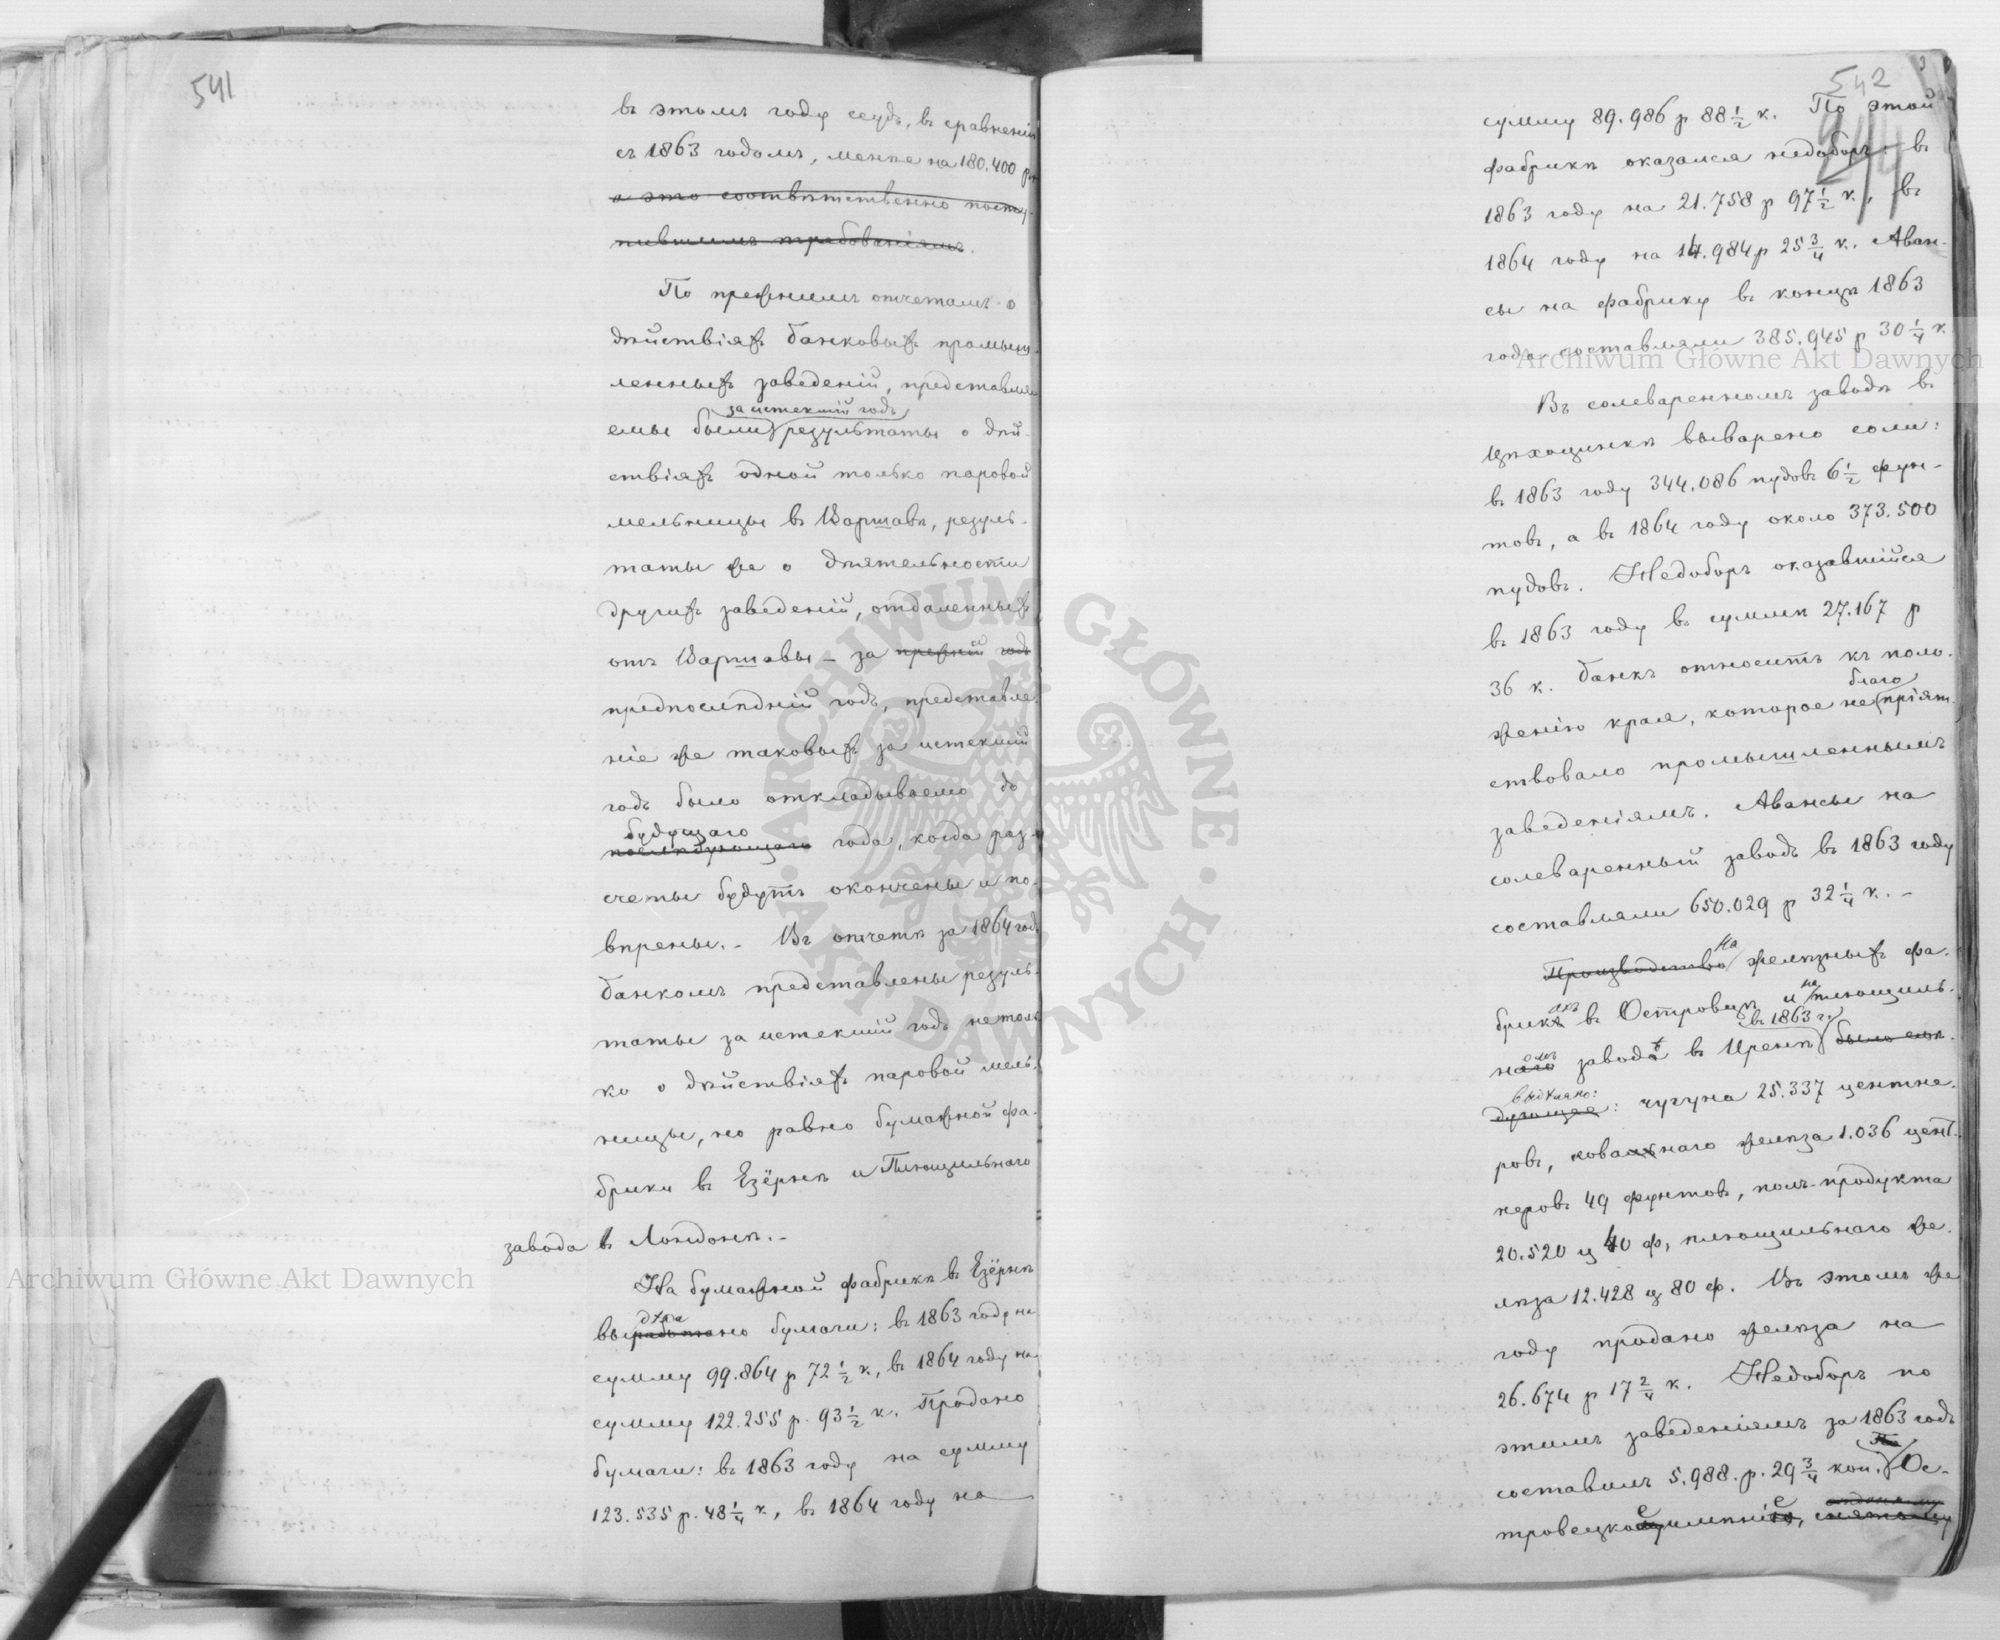 541
въ этомъ году ссудъ, въ сравненіи
съ 1863 годомъ, менѣе на 180.400 р.
а это соотвѣтственно посту-
пившимъ требованіямъ.
По прежнимъ отчетамъ о
дѣйствіяхъ банковыхъ промыш-
ленныхъ заведеній, представля-
за истекшій годъ
емы были результаты о дѣй-
ствіяхъ одной только паровой
мельницы въ Варшавѣ, резуль-
таты же о дѣятельности
другихъ заведеній, отдаленныхъ
отъ Варшавы – за прежній годъ
предпослѣдній годъ, представле-
ніе же таковыхъ за истекшій
годъ было откладываемо до
будущаго
послѣдующаго года, когда раз-
счеты будутъ окончены и по-
вѣрены. – Въ отчетѣ за 1864 годъ
банкомъ представлены резуль-
таты за истекшій годъ не толь-
ко о дѣйствіяхъ паровой мель-
ницы, но равно бумажной фа-
брики въ Езёрнѣ и Плющильнаго
завода въ Лондонѣ. –
На бумажной фабрикѣ въ Езёрнѣ
дѣла
выработано бумаги: въ 1863 году на
сумму 99.864 р 72 1/2 к., въ 1864 году на
сумму 122.255 р. 93 1/2 к. Продано
бумаги: въ 1863 году на сумму
123.535 р. 48 1/4 к., въ 1864 году на
542
сумму 89.986 р 88 1/2 к. По этой
фабрикѣ оказался недоборъ: въ
1863 году на 21.758 р 97 1/2 к., въ
1864 году на 14.984 р 25 3/4 к. Аван-
сы на фабрику въ концѣ 1863
года составляли 385.945 р 30 1/4 к
Въ солеваренномъ заводѣ въ
Цѣхоцинкѣ выварено соли:
въ 1863 году 344.086 пудовъ 6 1/2 фун-
товъ, а въ 1864 году около 373.500
пудовъ. Недоборъ оказавшійся
въ 1863 году въ суммѣ 27.167 р
36 к. банкъ относитъ къ поло-
благо
женію края, которое не пріят-
ствовало промышленнымъ
заведеніямъ. Авансы на
солеваренный заводъ въ 1863 году
составляли 650.029 р 32 1/4 к. –
На
Производство желѣзныхъ фа-
ахъ на
брикъ въ Островцѣ и плющиль-
омъ ѣ въ 1863 г.
наго завода въ Иренѣ было слѣ-
выдѣлано:
дующее: чугуна 25.337 центне-
ровъ, кованнаго желѣза 1.036 цент-
неровъ 49 фунтовъ, полъ-продукта
20.520 ц 40 ф, плющильнаго же-
лѣза 12.428 ц 80 ф. Въ этомъ же
году продано желѣза на
26.674 р 17 2/4 к. Недоборъ по
этимъ заведеніямъ за 1863 годъ
По
составилъ 5.988. р. 29 3/4 коп. Ос-
е е
тровецкому имѣнію,
Archiwum Główne Akt Dawnych
Archiwum Główne Akt Dawnych
ARCHIWUM GŁÓWNE · AKT DAWNYCH ·